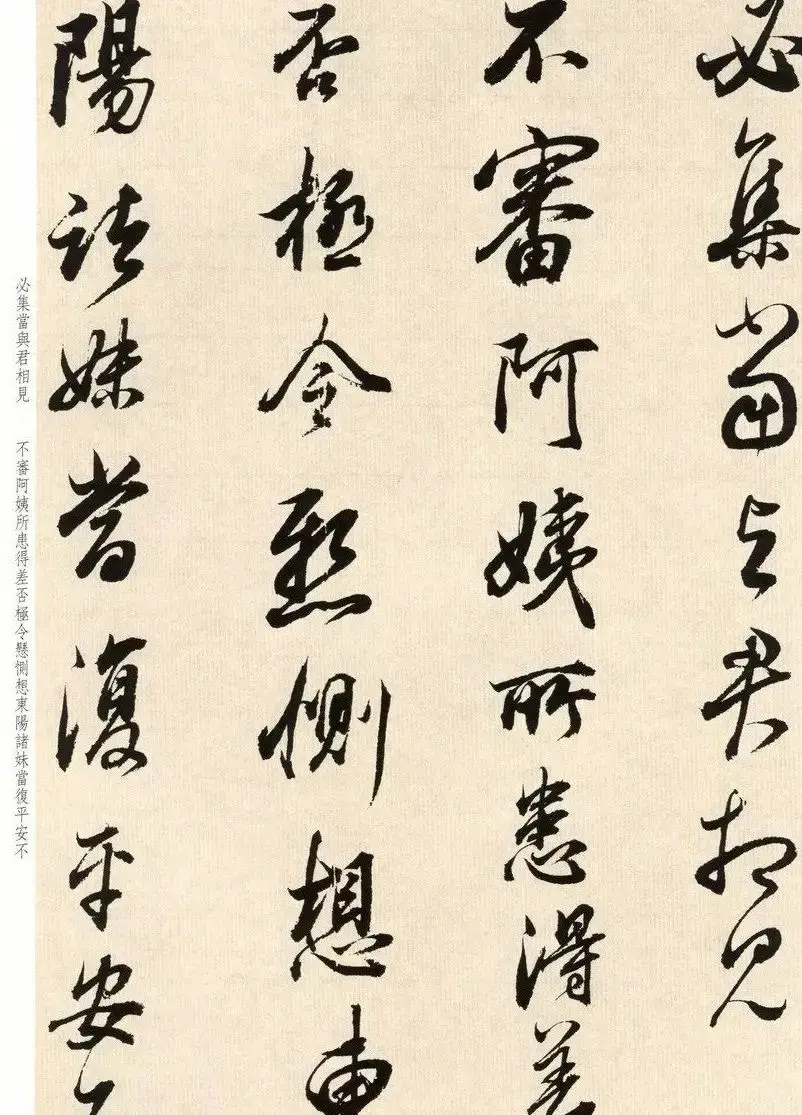 必集當與君相見
不審阿姨所患得差
否極令懸惻想東
陽諸妹當復平安不
必集當與君相見　不審阿姨所患得差否極令懸惻想東陽諸妹當復平安不